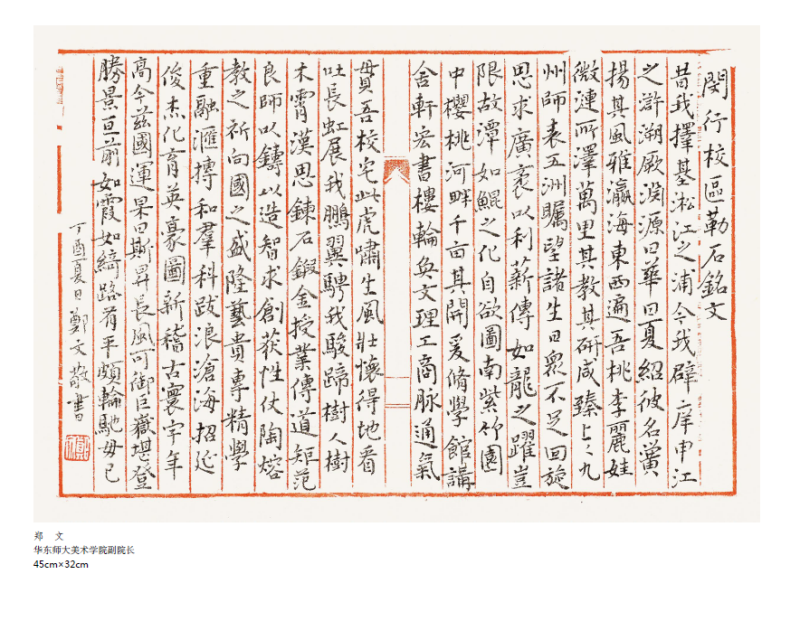 閔行校區勒石銘文
昔我擇基淞江之浦今我辟庠申江
之滸溯厥淵源曰華曰夏紹彼名黌
揚其風雅瀛海東西遍吾桃李麗娃
微漣所澤萬里其教其研咸臻上上九
州師表五洲矚望諸生日衆不足回旋
思求廣袤以利薪傳如龍之躍豈
限故潭如鯤之化自欲圖南紫竹園
中櫻桃河畔千亩其開爰脩學館講
舍軒宏書樓輪奐文理工商脉通氣
貫吾校宅此虎嘯生風壯懷得地看
吐長虹展我鵬翼騁我駿蹄樹人樹
木霄漢思鍊石鍛金授業傳道矩范
良師以鑄以造智求創获性仗陶熔
教之祈向國之盛隆藝貴專精學
重融滙摶和羣科跋浪滄海招延
俊杰化育英豪圖新稽古寰宇年
高今兹國運杲日斯昇長風可御巨嶽堪登
勝景亘前如霞如綺路有平頗輪馳毋已
丁酉夏日鄭文敬書
郑 文
华东师大美术学院副院长
45cm×32cm